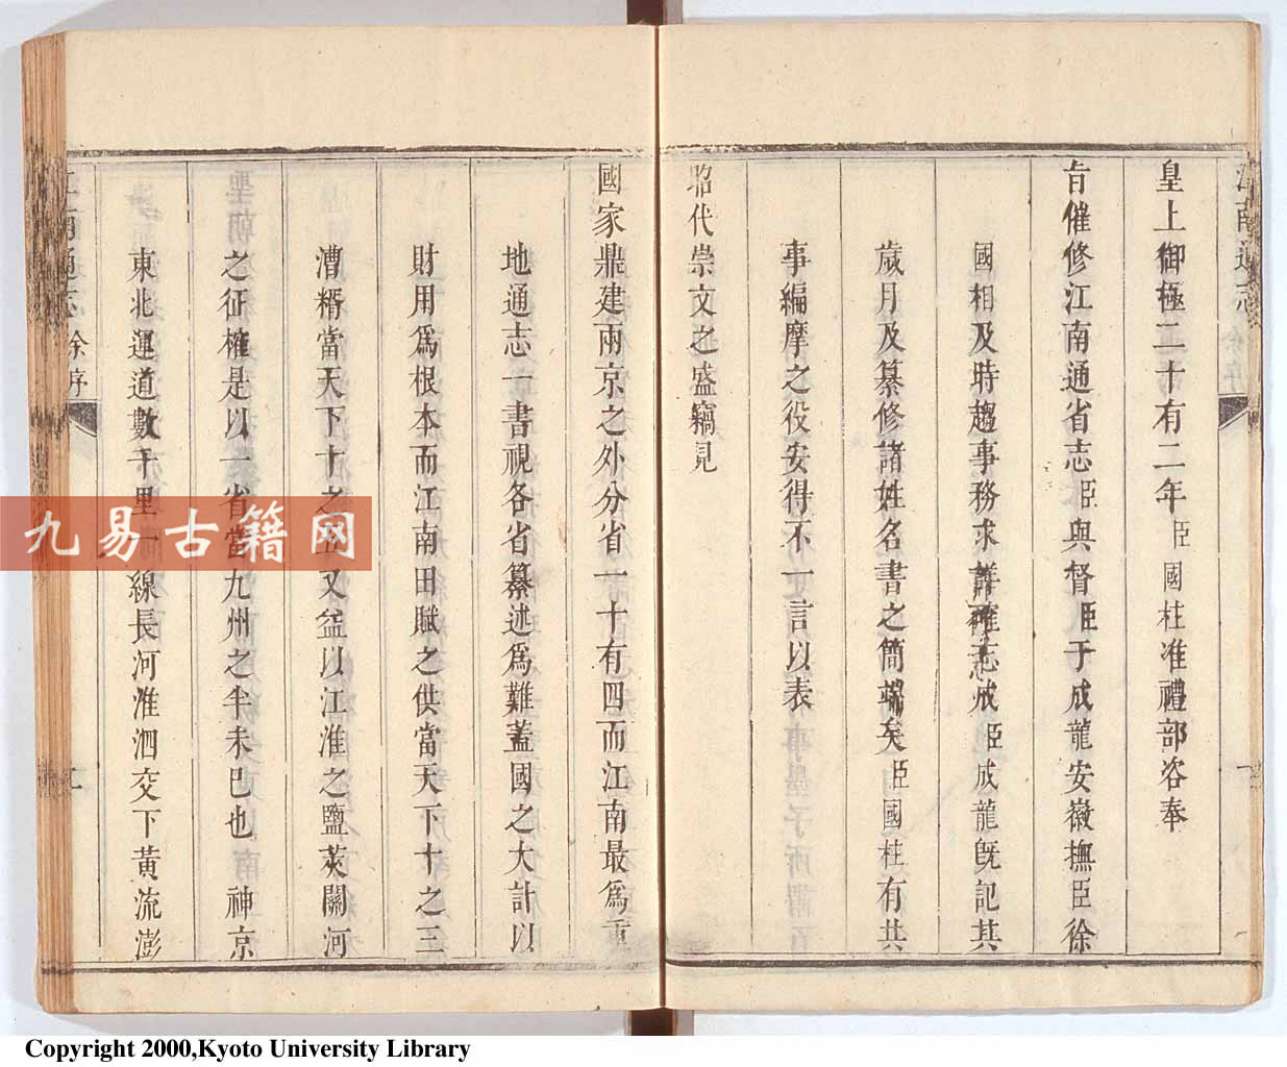 江南通志 徐序 一
皇上御極二十有二年臣國柱准禮部咨奉
旨催修江南通省志臣與督臣于成龍安徽撫臣徐
國相及時趨事務求詳確志成臣成龍旣記其
歲月及纂修諸姓名書之簡端矣臣國柱有共
事編摩之役安得不一言以表
昭代崇文之盛竊見
國家鼎建兩京之外分省一十有四而江南最爲重
地通志一書視各省纂述爲難蓋國之大計以
財用爲根本而江南田賦之供當天下十之三
漕糈當天下十之五又益以江淮之鹽莢關河
之征榷是以一省當九州之半未巳也 神京
東北運道數千里一線長河淮泗交下黃流澎
江南通志 余序 二
九易古籍网
Copyright 2000,Kyoto University Library